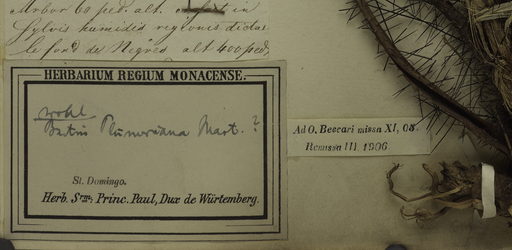 Arbor 60 ped. alt. in
Sylvis humidis regionis dictae
le fond de Nègres alt 400 ped.
HERBARIUM REGIUM MONACENSE.
wohl
Bactris Plumeriana Mart. ?
St. Domingo.
Herb. Smi: Princ. Paul, Dux de Würtemberg.
Ad O. Beccari missa XI, 05.
Remissa III. 1906.